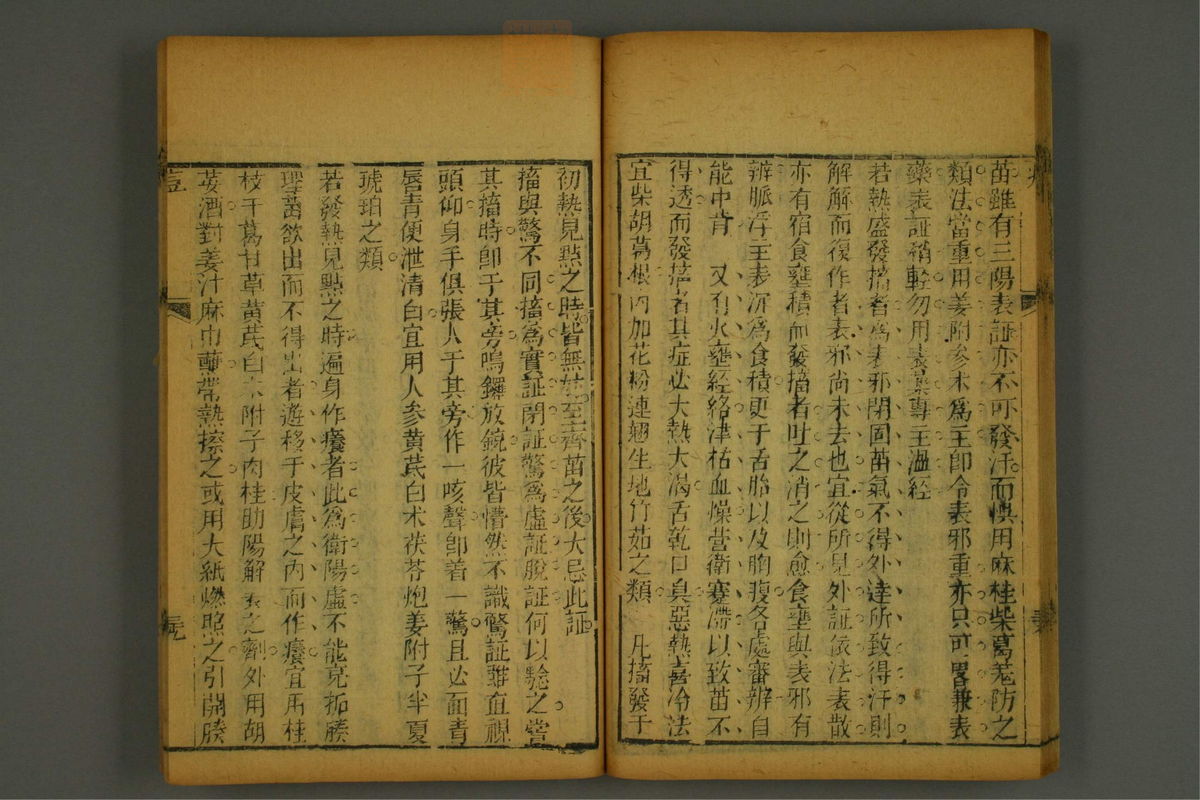 苗雖有三陽表証亦不可發汗而慎用麻桂柴葛羗防之
類法當重用姜附参术為主即令表邪重亦只可畧兼表
藥表証稍輕勿用表藥專主温經
若熱盛發搐者為表邪閉固苗氣不得外達所致得汗則
解解而復作者表邪尚未去也宜從所見外証依法表散
亦有宿食壅積而發搐者吐之消之則愈食壅與表邪有
辨脈浮主表沉為食積更于舌胎以及胸腹各處審辨自
能中肯 又有火壅經絡津枯血燥营衛蹇滯以致苗不
得透而發搐者其症必大熱大渴舌乾口臭惡熱喜冷法
宜柴胡葛根內加花粉連翹生地竹茹之類 凡搐發于
初熱見點之時皆無妨至齊苗之後大忌此証
搐與驚不同搐為實証閉証驚為虛証脫証何以驗之嘗
其搐時即于其旁鳴鑼放銃彼皆懵然不識驚証雖直視
頭仰身手俱張人于其旁作一咳聲即着一驚且必面青
唇青便泄清白宜用人参黄芪白术茯苓炮姜附子半夏
琥珀之類
若發熱見點之時遍身作癢者此為衛陽虛不能亮拓腠
理苗欲出而不得出者遊移于皮膚之內而作癢宜用桂
枝干葛甘草黄芪白术附子肉桂助陽解表之劑外用胡
荽酒對姜汁麻巾蘸帶熱擦之或用大紙燃照之引開腠